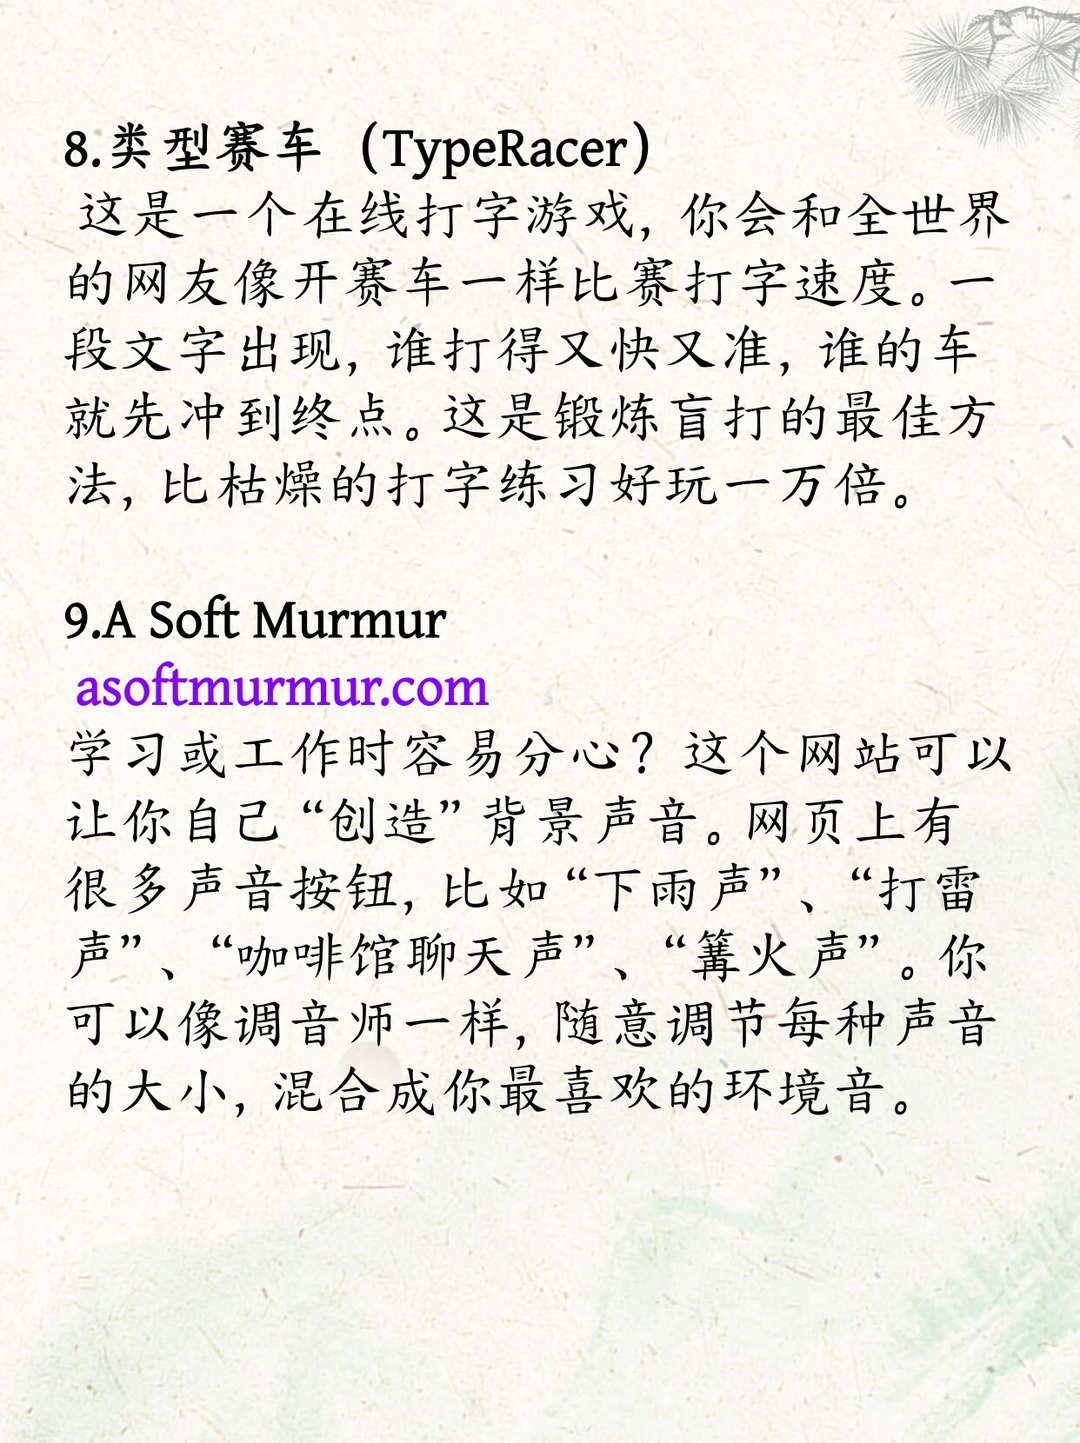 8.类型赛车（TypeRacer）
这是一个在线打字游戏，你会和全世界
的网友像开赛车一样比赛打字速度。一
段文字出现，谁打得又快又准，谁的车
就先冲到终点。这是锻炼盲打的最佳方
法，比枯燥的打字练习好玩一万倍。
9.A Soft Murmur
asoftmurmur.com
学习或工作时容易分心？这个网站可以
让你自己“创造”背景声音。网页上有
很多声音按钮，比如“下雨声”、“打雷
声”、“咖啡馆聊天声”、“篝火声”。你
可以像调音师一样，随意调节每种声音
的大小，混合成你最喜欢的环境音。